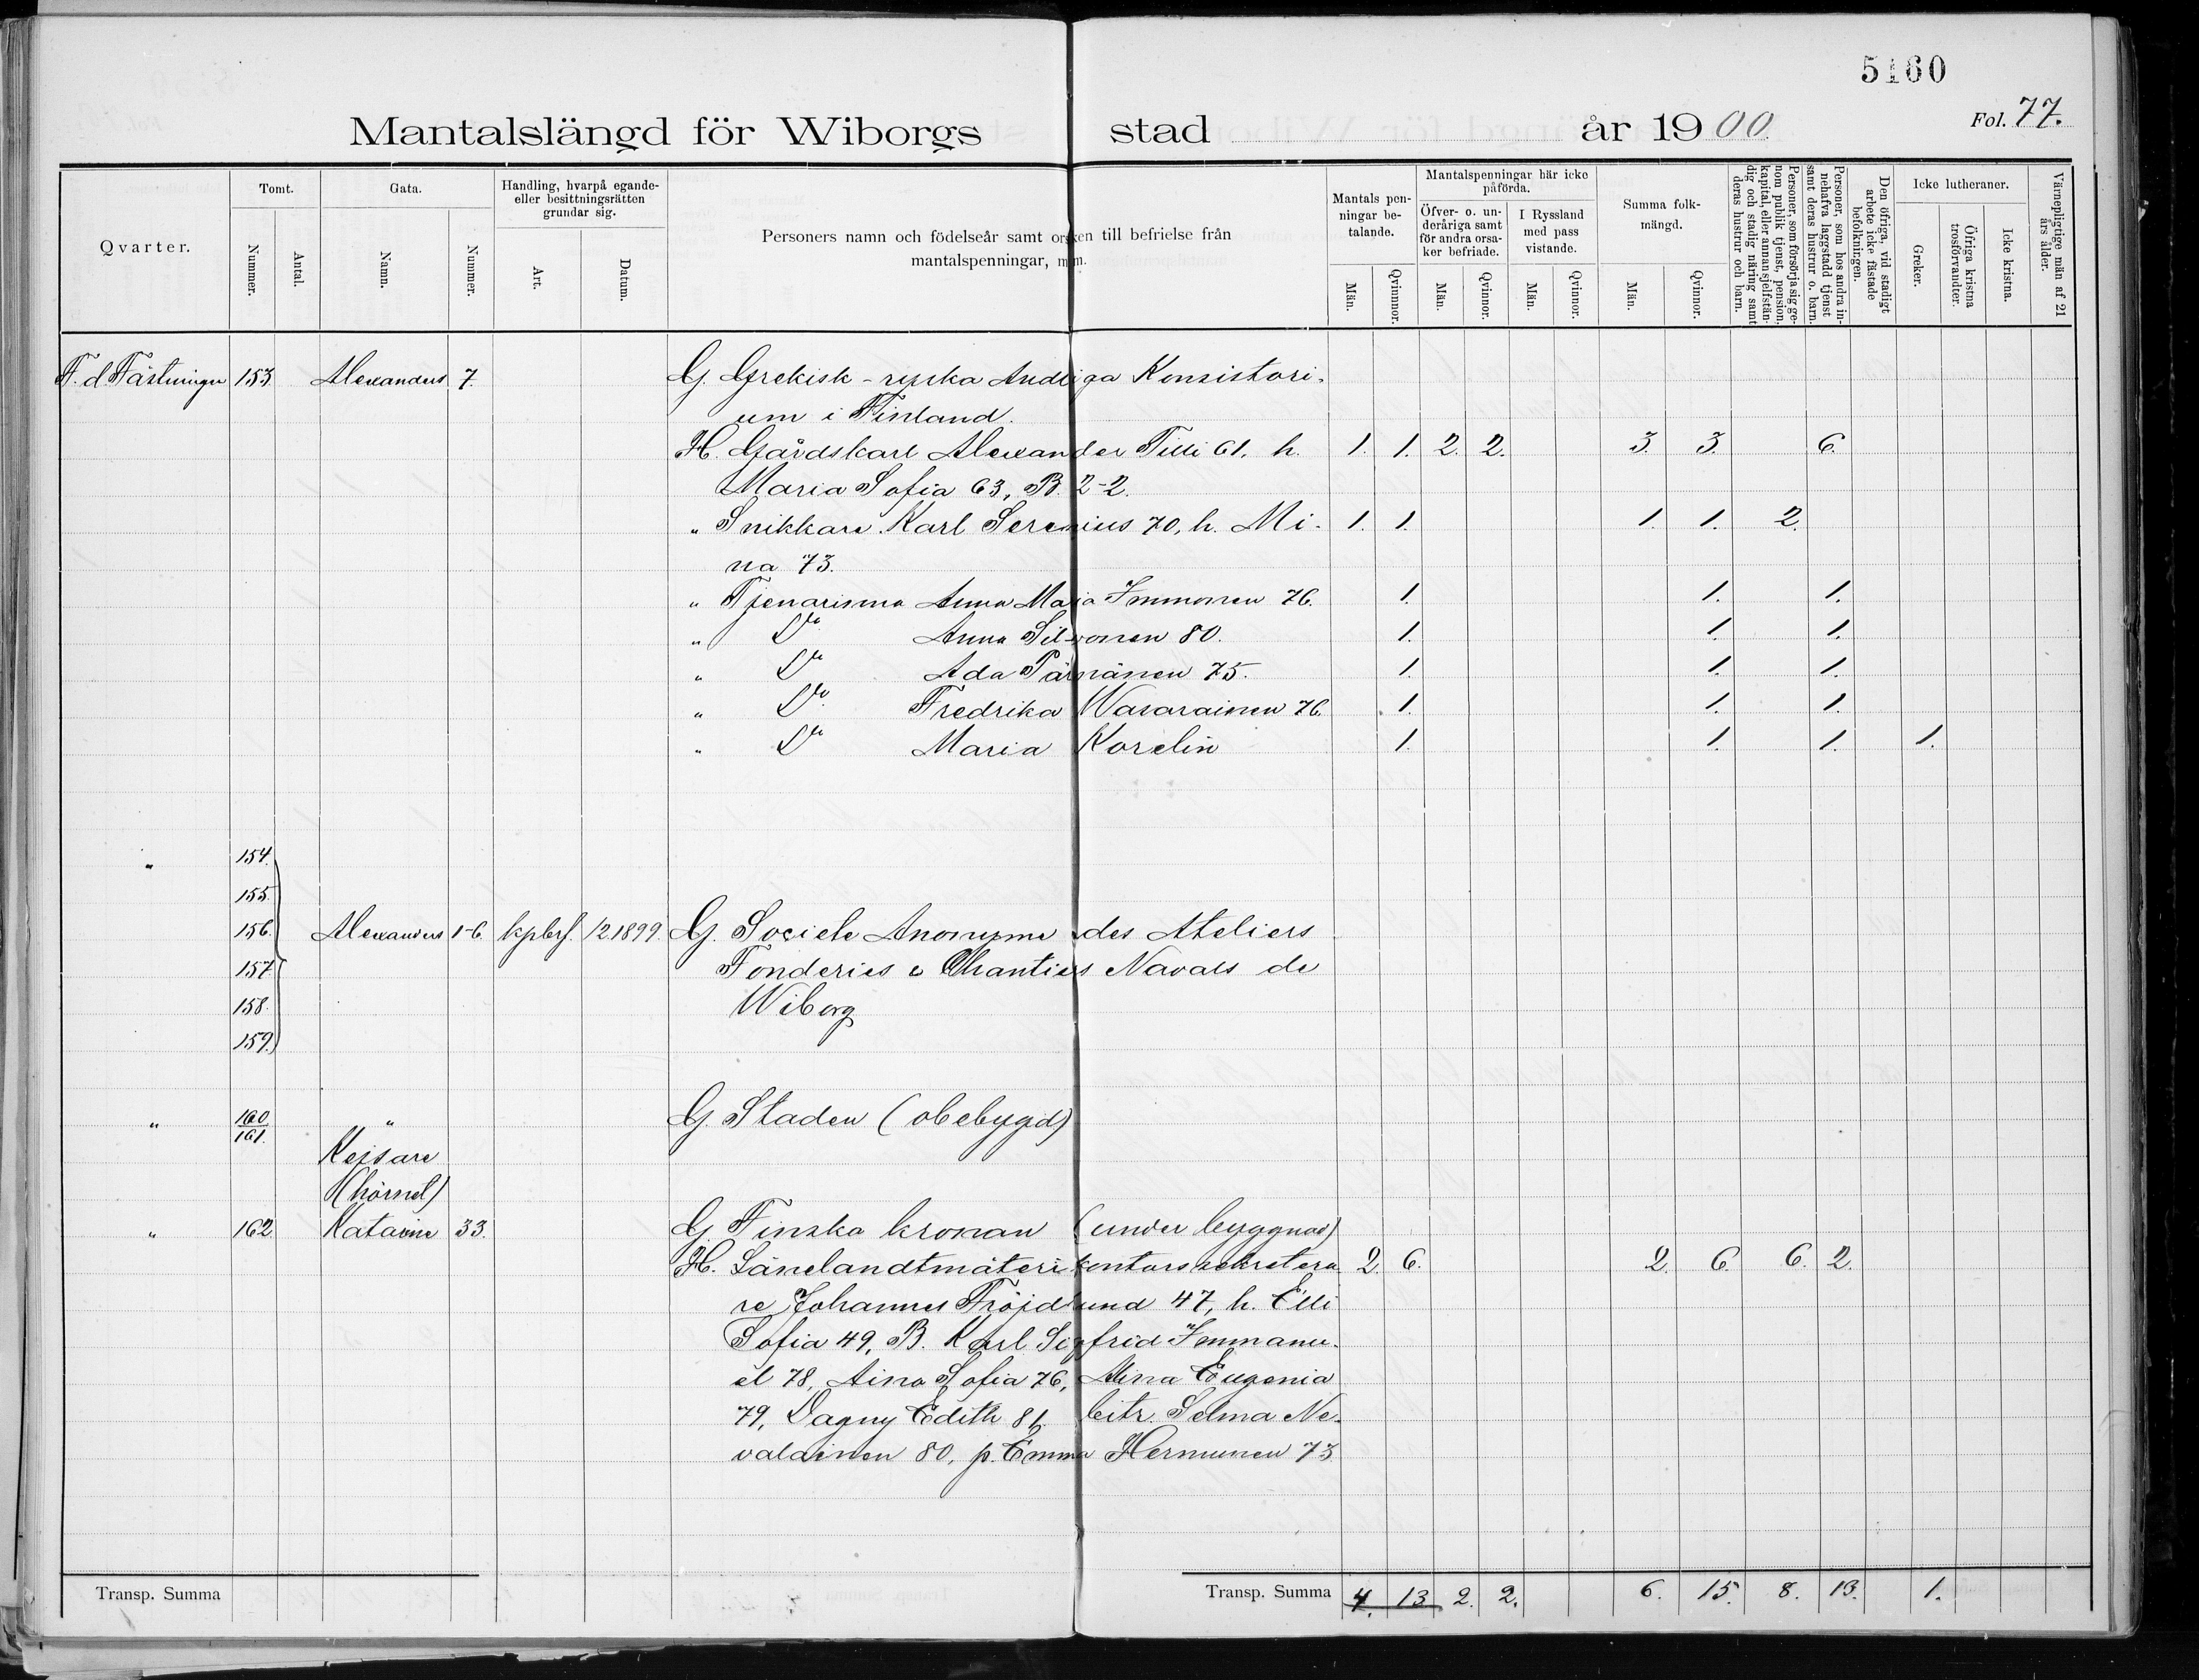 5160
Mantalslängd för Wiborgs stad år 1900. Fol. 77.
Qvarter.
Tomt.
Nummer.
Antal.
Gata.
Namn.
Nummer.
Handling, hvarpå egande-
eller besittningsrätten
grundar sig.
Art.
Datum.
Personers namn och födelseår samt orsken till befrielse från
mantalspenningar, m.m.
Mantals pen-
ningar be-
talande.
Män.
Qvinnor.
Mantalspenningar här icke
påförda.
Öfver- o. un-
deråriga samt
för andra orsa-
ker befriade.
Män.
Qvinnor.
I Ryssland
med pass
vistande.
Män.
Qvinnor.
Summa folk-
mängd.
Män.
Qvinnor.
Personer, som försörja sig ge-
nom publik tjenst, pension,
kapital, eller annan sjelfstän-
dig och stadig näring samt
deras hustrur och barn.
Personer, som hos andra in-
nehafva laggstadd tjenst
samt deras hustrur o. barn.
Den öfriga, vid stadigt
arbete icke fästade
befolkningen.
Icke lutheraner.
Greker.
Öfriga kristna
trosförvandter.
Icke kristna.
Värnepligtige män af 21
års ålder.
F. d. Fästningen 153 Alexanders 7. G. Grekisk-ryska Andliga Konsistori-
um i Finland.
H. Gårdskarl Alexander Tilli 61, h. 1. 1. 2. 2. 3. 3. 6.
Maria Sofia 63, B. 2-2.
" Snikkare Karl Serenius 70, h. Mi- 1. 1. 1. 1. 2.
na 73.
" Tjenarinna Anna Maria Immonen 76. 1. 1. 1.
" Do Anna Silvonen 80. 1. 1. 1.
" Do Ada Pärnänen 75. 1. 1. 1.
" Do Fredrika Wasarainen 76. 1. 1. 1.
" Do Maria Korelin 1. 1. 1. 1.
" 154.
155.
156. Alexanders 1-6. kpbrf. 12 1899. G. Societe Anonyme des Ateliers
157. Fonderies & Chantiers Navals de
158. Wiborg
159.
" 160/161. " G. Staden (obebygd)
Kejsare
(hörnet)
" 162 Katarine 33. G. Finska kronan (under byggnad)
H. Länelandtmäterikontorssekretera 2. 6. 2. 6. 6. 2.
re Johannes Fröjdlund 47, h. Elli
Sofia 49, B. Karl Sigfrid Immanu-
el 78, Aino Sofia 76, Alina Eugenia
79, Dagny Edith 81, bitr. Selma Ne-
valainen 80, p. Emma Hermunen 73
Transp. Summa
Transp. Summa 4. 13 2. 2. 6. 15. 8. 13. 1.